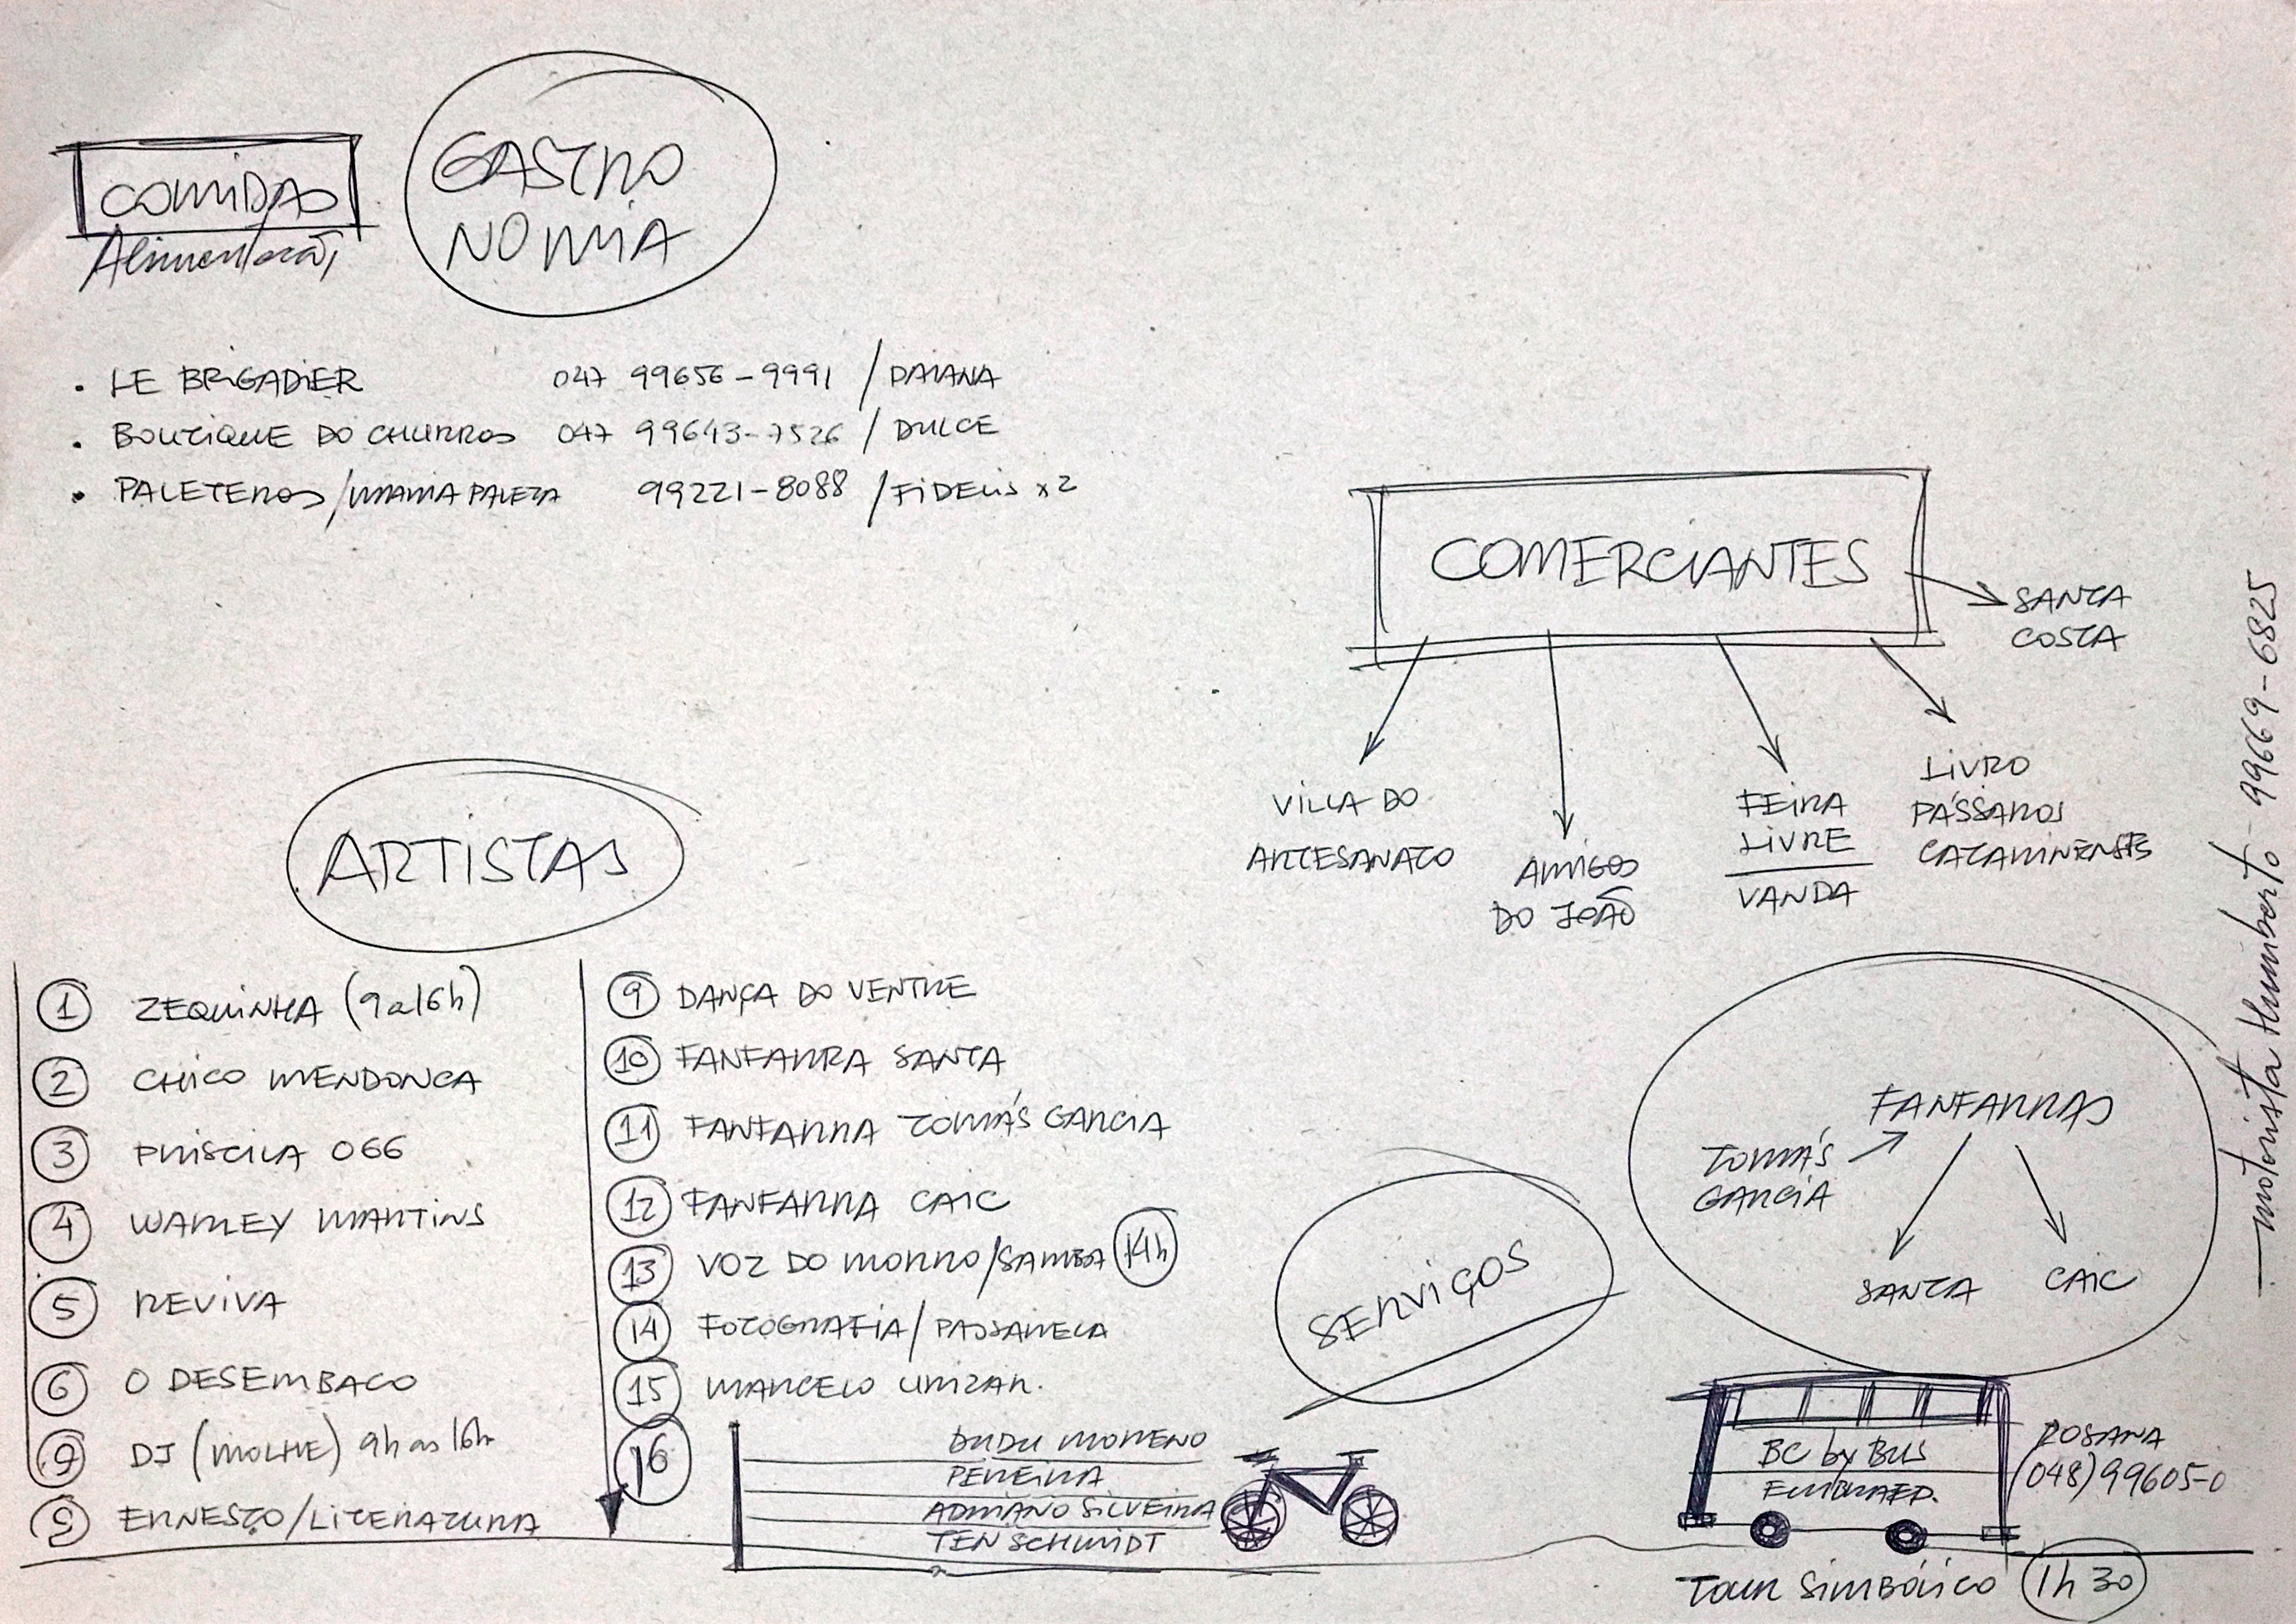 COMIDAS
Alimentação
GASTRO
NOMIA
. LE BRIGADIER 047 99656-9991 / DAIANA
. BOUTIQUE DO CHURROS 047 99643-7526 / DULCE
. PALETEROS/MAMA PALETA 99221-8088 / FIDELIS x2
COMERCIANTES
SANTA
COSTA
VILLA DO
ARTESANATO
AMIGOS
DO JOÃO
FEIRA
LIVRE
VANDA
LIVRO
PÁSSAROS
CATARINENSES
motorista Humberto - 99669-6825
ARTISTAS
1 ZEQUINHA (9 a 16h)
2 CHICO MENDONCA
3 PRISCILA 066
4 WARLEY MARTINS
5 REVIVA
6 O DESEMBACO
DJ (MOLHE) 9h as 16h
ERNESTO/LITERATURA
9 DANÇA DO VENTRE
10 FANFARRA SANTA
11 FANFARRA TOMÁS GARCIA
12 FANFARRA CAIC
13 VOZ DO MORRO/SAMBA 14h
14 FOTOGRAFIA/PASSARELA
15 MARCELO URIZAR.
16
DUDU MORENO
PEREIRA
ADRIANO SILVEIRA
TEN SCHMIDT
SERVIÇOS
FANFARRAS
TOMÁS
GARCIA
SANTA CAIC
BC by BUS
EMBRAED.
ROSANA
(048) 99605-0
TOUR SIMBÓLICO 1h 30